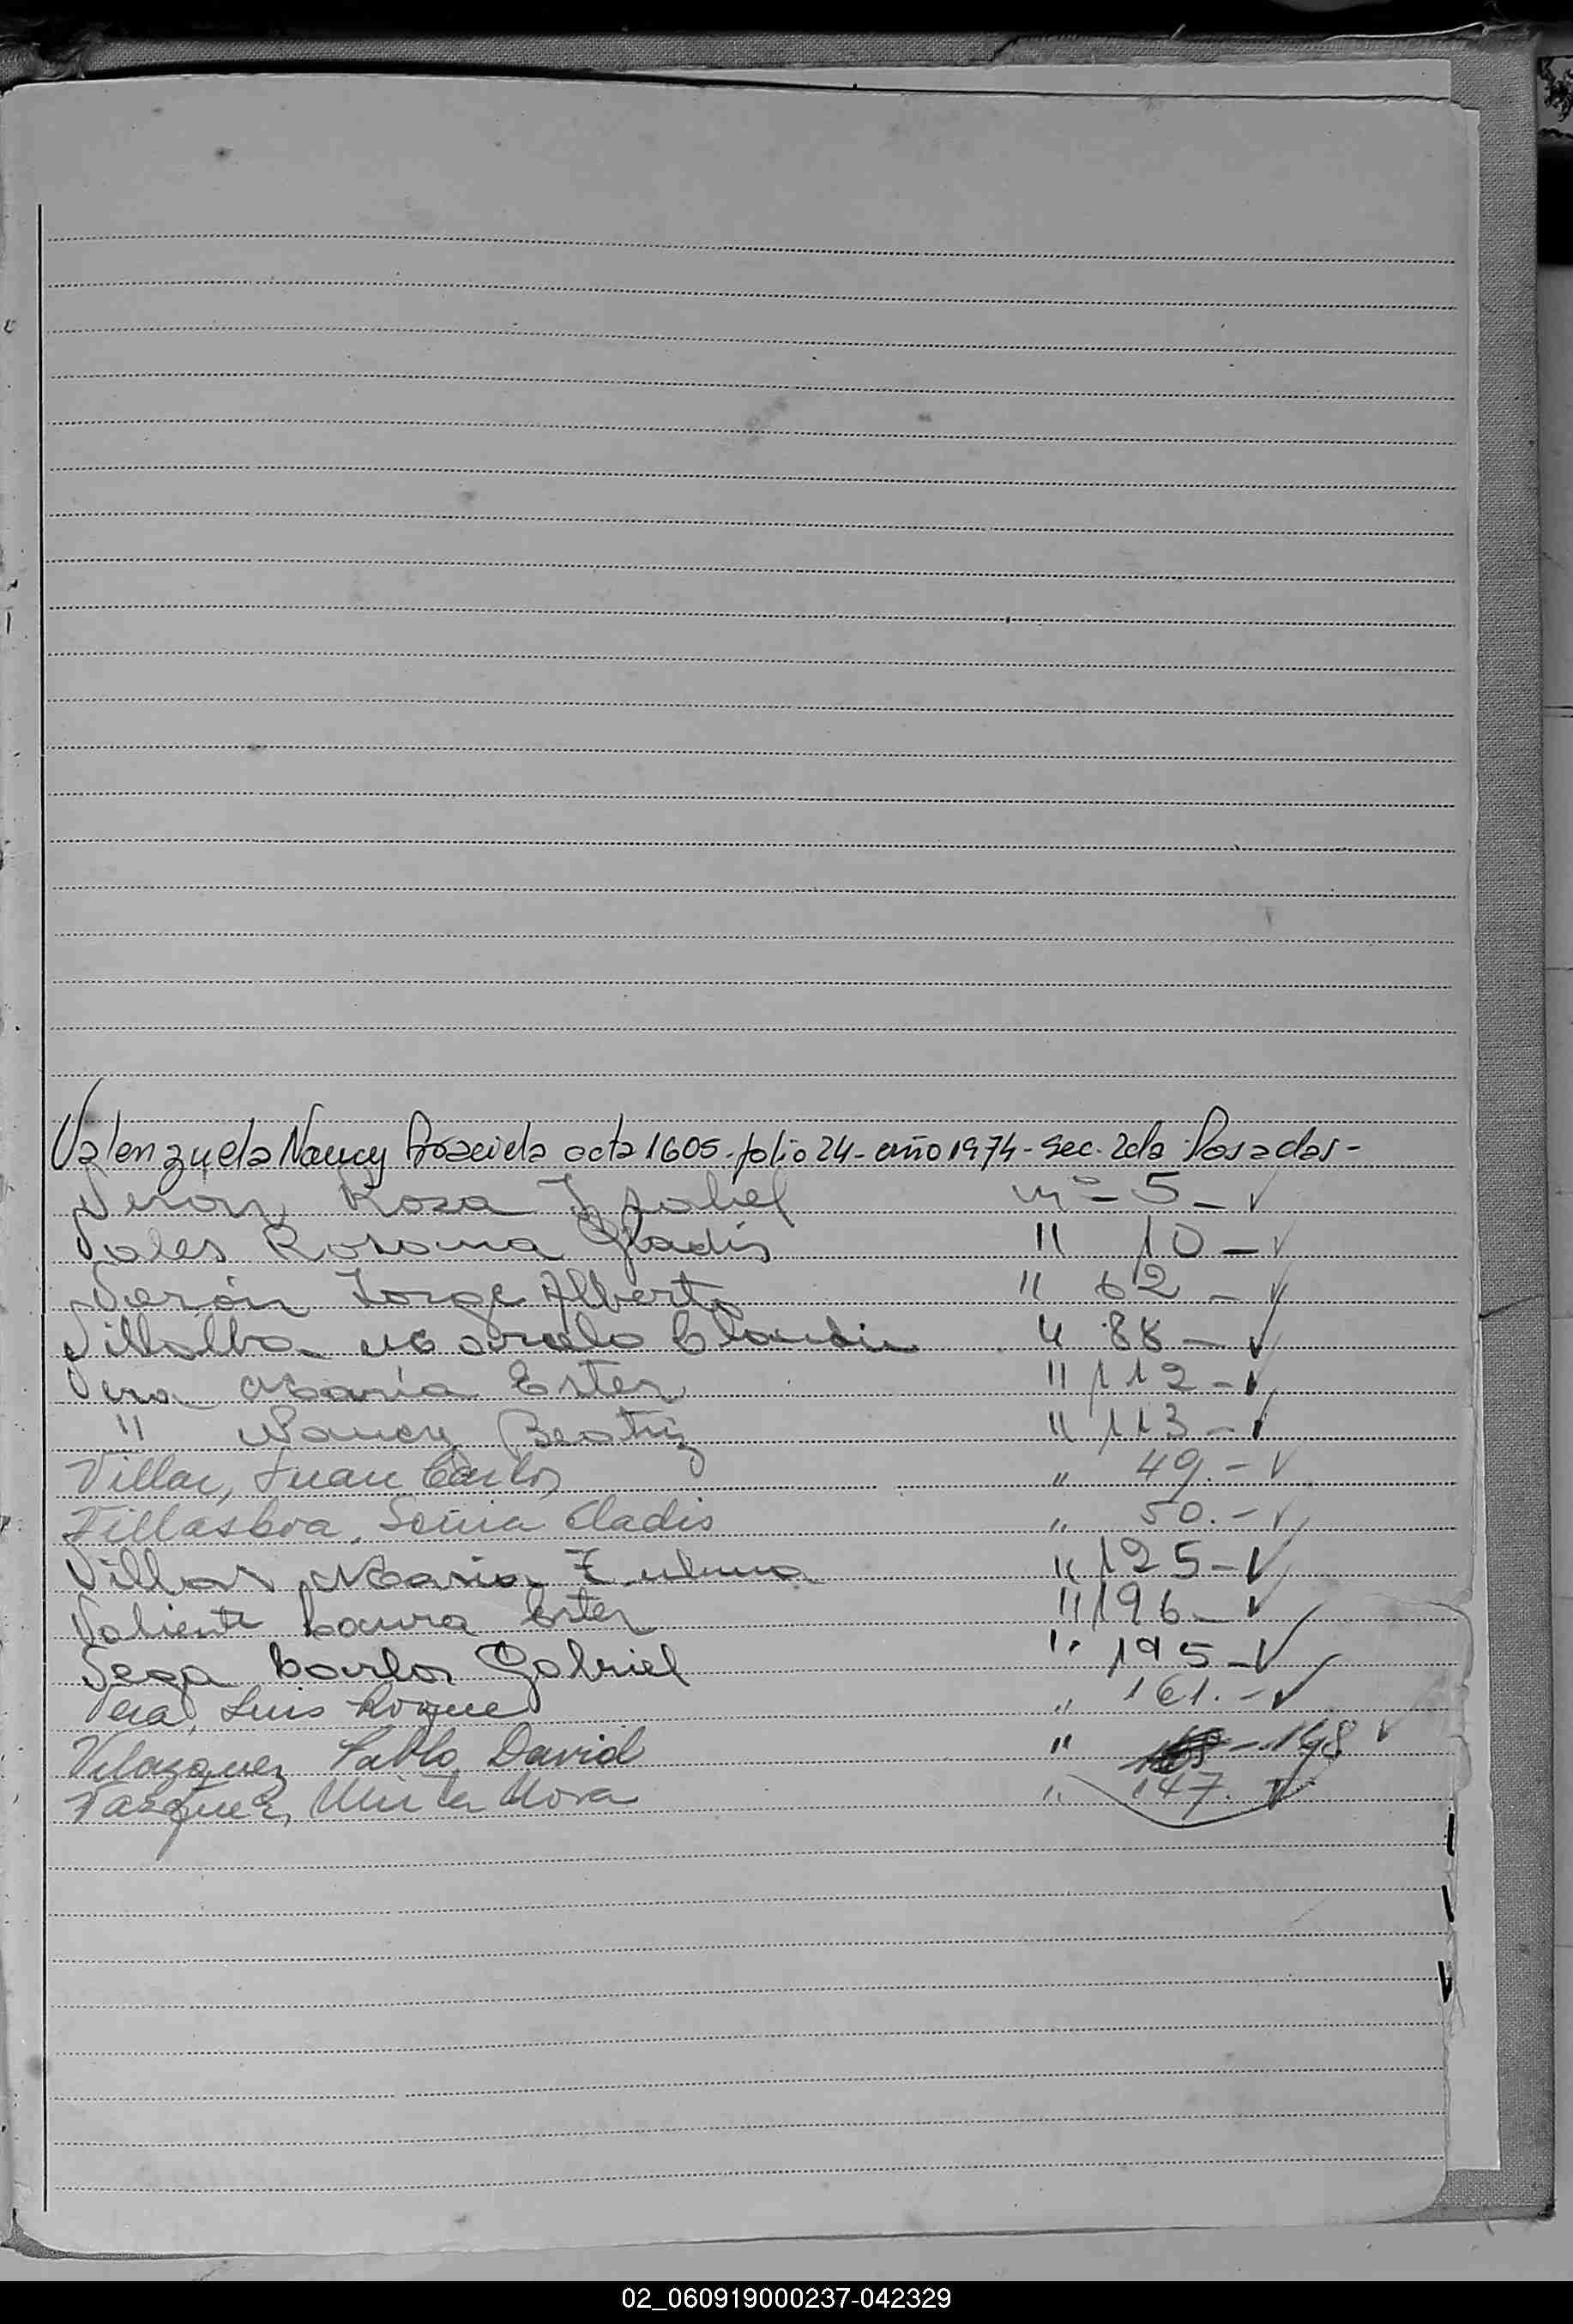 Valenzuela Nancy Graciela acta 1605-folio 24-año 1974-Sec. 2da Posadas-
Veron Rosa Isabel nº= 5-✓
Vales Rosana Gladis " 10-✓
Verón Jorge Alberto " 62-✓
Villalba Marcelo Claudio " 88-✓
Vera Maria Ester " 112-✓
" Nancy Beatriz " 113-✓
Villar, Juan Carlos " 49.-✓
Villasboa, Gladis " 50.-✓
Villar Maria Zulema " 125-✓
Valiente Laura Ester " 196-✓
Vega Carlos Gabriel " 195-✓
Vera, Luis Roque " 161.-✓
Velazquez Pablo David " -198 ✓
Vazquez, Mirta Nora " 147. ✓
02_060919000237-042329